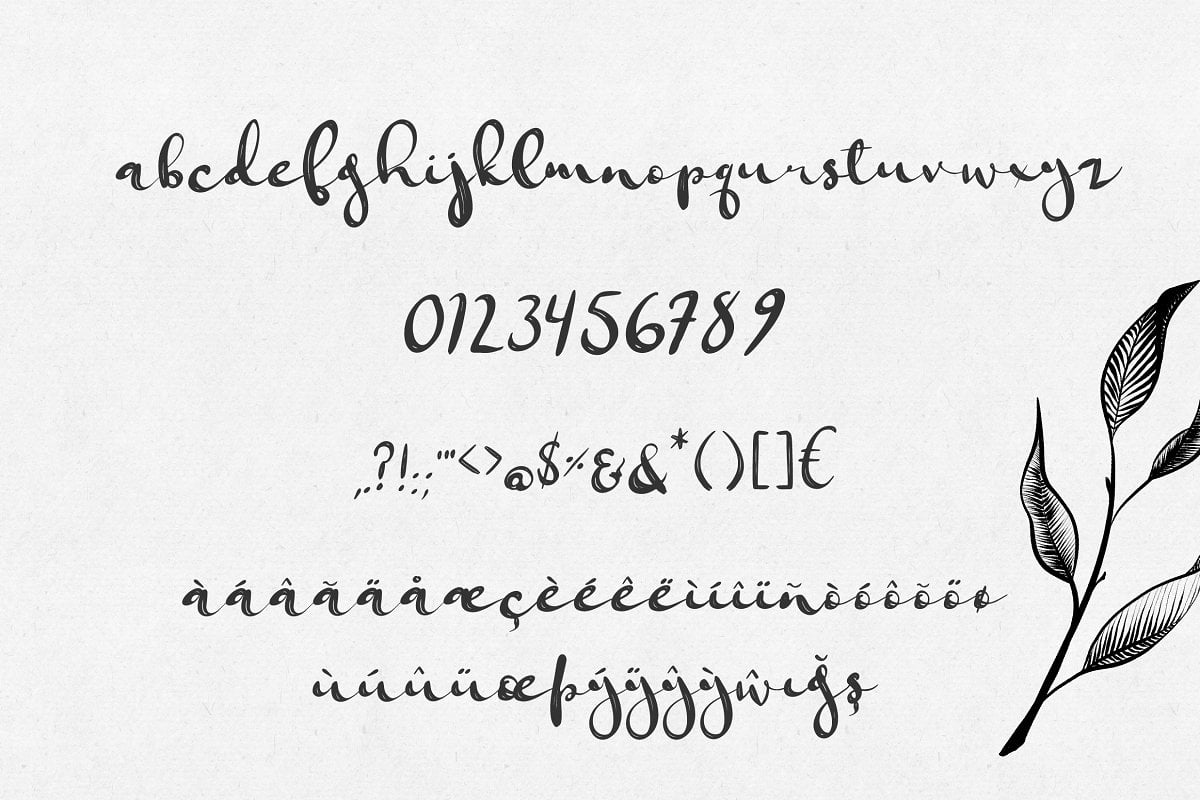 abcdefghijklmnopqurstuvwxyz
0123456789
,.?!:;'"<>@$%&&*()[]€
àáâãäåæçèéêëìíîïñòóôõöø
ùúûüœþýÿŷỳŵığş